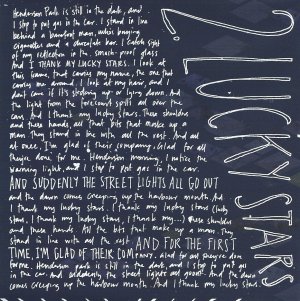 Henderson Park is still in the dark, and
I stop to put gas in the car. I stand in line
behind a barefoot man, whose buying
cigarettes and a chocolate bar. I catch sight
of my reflection in the smash-proof glass
And I THANK MY LUCKY STARS. I look at
this frame, that carries my name, the one that
carries me around. I look at my hair and
don't care if it's standing up or lying down. And
the light from the forecourt spills all over the
cars and I thank my lucky stars. These shoulders
and these hands all that bits that make up a
man they stand in line with all the rest. And all
at once, I'm glad of their company. Glad for all
they've done for me. Henderson morning, I notice the
warning light, and I stop to put gas in the car.
AND SUDDENLY THE STREET LIGHTS ALL GO OUT
and the dawn comes creeping up the harbour mouth And
I thank my lucky stars. I thank my lucky stars (lucky
stars, I thank my lucky stars, I thank my...) These shoulders
and these hands All the bits that make up a man, they
stand in line with all the rest. AND FOR THE FIRST
TIME, I'M GLAD OF THEIR COMPANY. Glad for all they've done
for me. Henderson park is still in the dark, and I stop to put gas
in the car. And suddenly the street lights all go out And the dawn
comes creeping up the harbour mouth. And I thank my lucky stars
2. LUCKY STARS